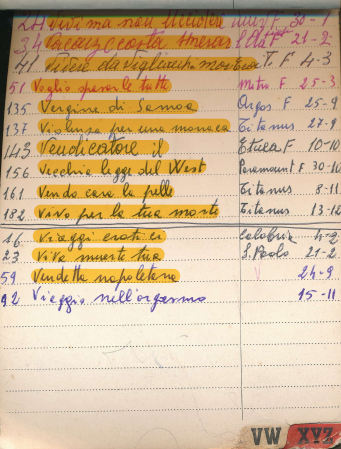 24 Vivi ma non uccidere F 30-1
34 Vacanze costa F 21-2
41 Vivere da vigliacchi T. F 4-3
51 Voglio sposarle tutte Metro F 25-3
135 Vergine di Samoa Orgos F 25-9
137 Violenza per una monaca Titanus 27-9
143 Vendicatore il F 10-10
156 Vecchia legge del West Paramount F 30-10
161 Vendo cara la pelle Titanus 8-11
182 Vivo per la tua morte Titanus 13-12
16 Viaggi erotici Calabria 4-2
23 Viva muerte tua S. Paolo 21-2
59 Vendetta napoletana 24-9
92 Viaggio nell'orgasmo 15-11
VW XYZ